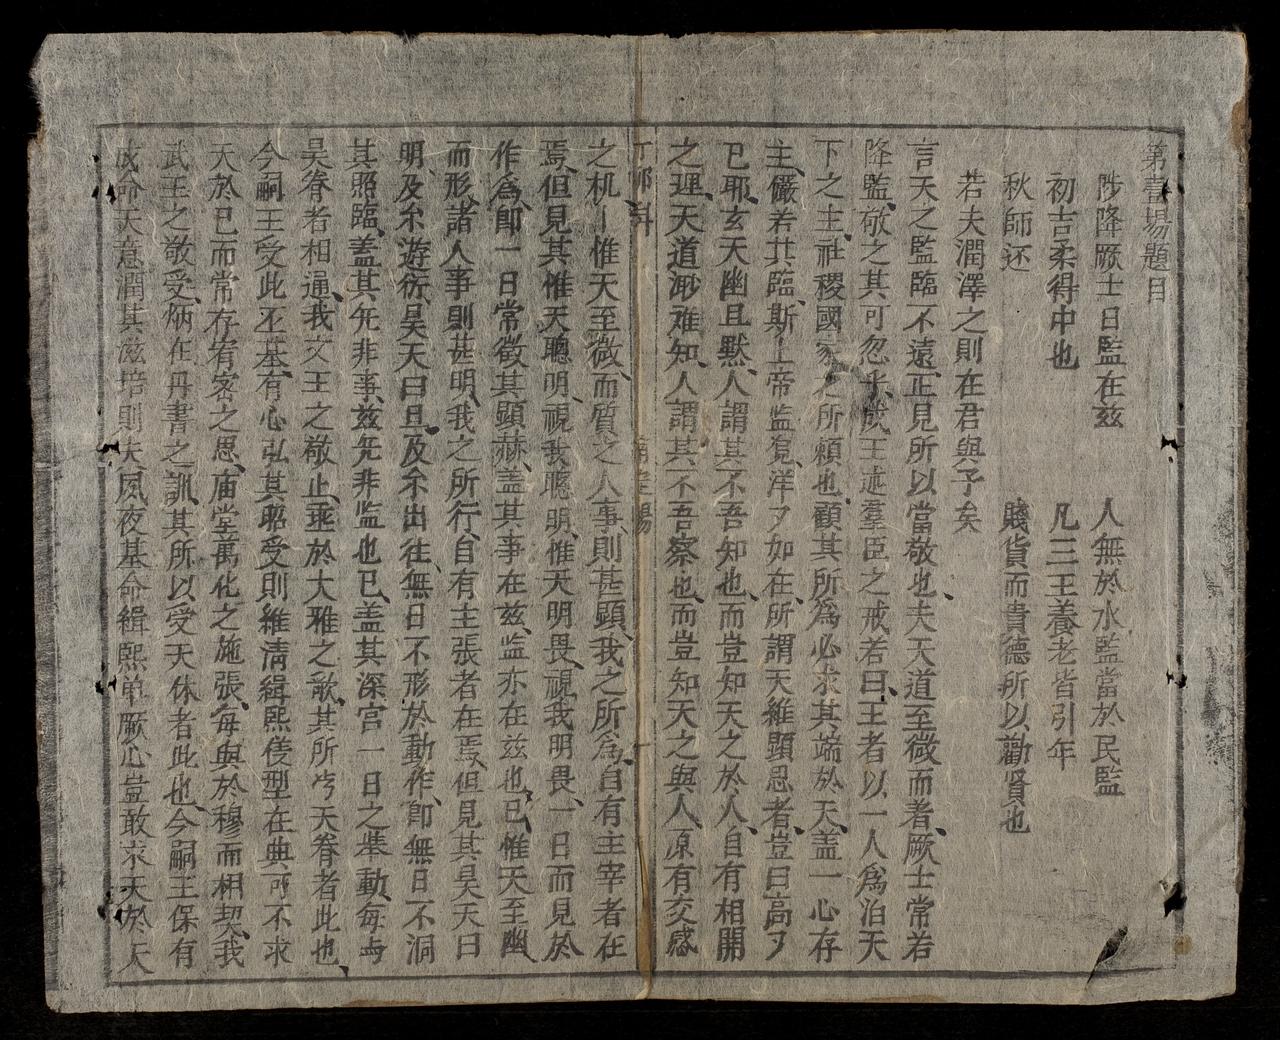 第壹場題目
陟降厥士日監在玆　人無於水監當於民監
初吉柔得中也　凡三王養老皆引年
秋師还　賤貨而貴德所以勸賢也
若夫潤澤之則在君與子矣
言天之監臨不遠正見所以當敬也夫天道至微而者厥士常若
降監敬之其可忽乎成王述羣臣之戒若曰王者以一人爲泊天
下之主社稷國家之所頼也顧其所爲必求其端於天盖一心存
主儼若其臨斯上帝监覓洋〻如在所謂天維顯思者豈曰高〻
已耶玄天幽且黙人謂其不吾知也而豈知天之於人自有相開
之理天道渺难知人謂其不吾察也而豈知天之與人原有交感
丁卯科　壹場
之机惟天至微而質之人事則甚顯我之所爲自有主宰者在
焉但見其惟天聰明視我聽明惟天明畏視我明畏一日而見於
作爲卽一日常徵其顯赫盖其事在玆监亦在玆也已惟天至幽
而形諸人事則甚明我之所行自有主張者在焉但見其昊天曰
明及尔遊衍昊天曰旦及尔出往無日不形於動作卽無日不洞
其照臨盖其旡非事玆旡非监也已盖其深宫一日之举動每与
吴眷者相通我文王之敬止乘於大雅之歌其所以天眷者此也
今嗣王受此丕基有心弘其昭受則維淸緝熙儀型在典可不求
天於已而常存宥宻之思庙堂萬化之施張每與於穆而相契我
武王之敬受炳在丹書之訓其所以受天休者此也今嗣王保有
成命天意潤其滋培則夫夙夜基命緝熙单厥心豈敢求天於天